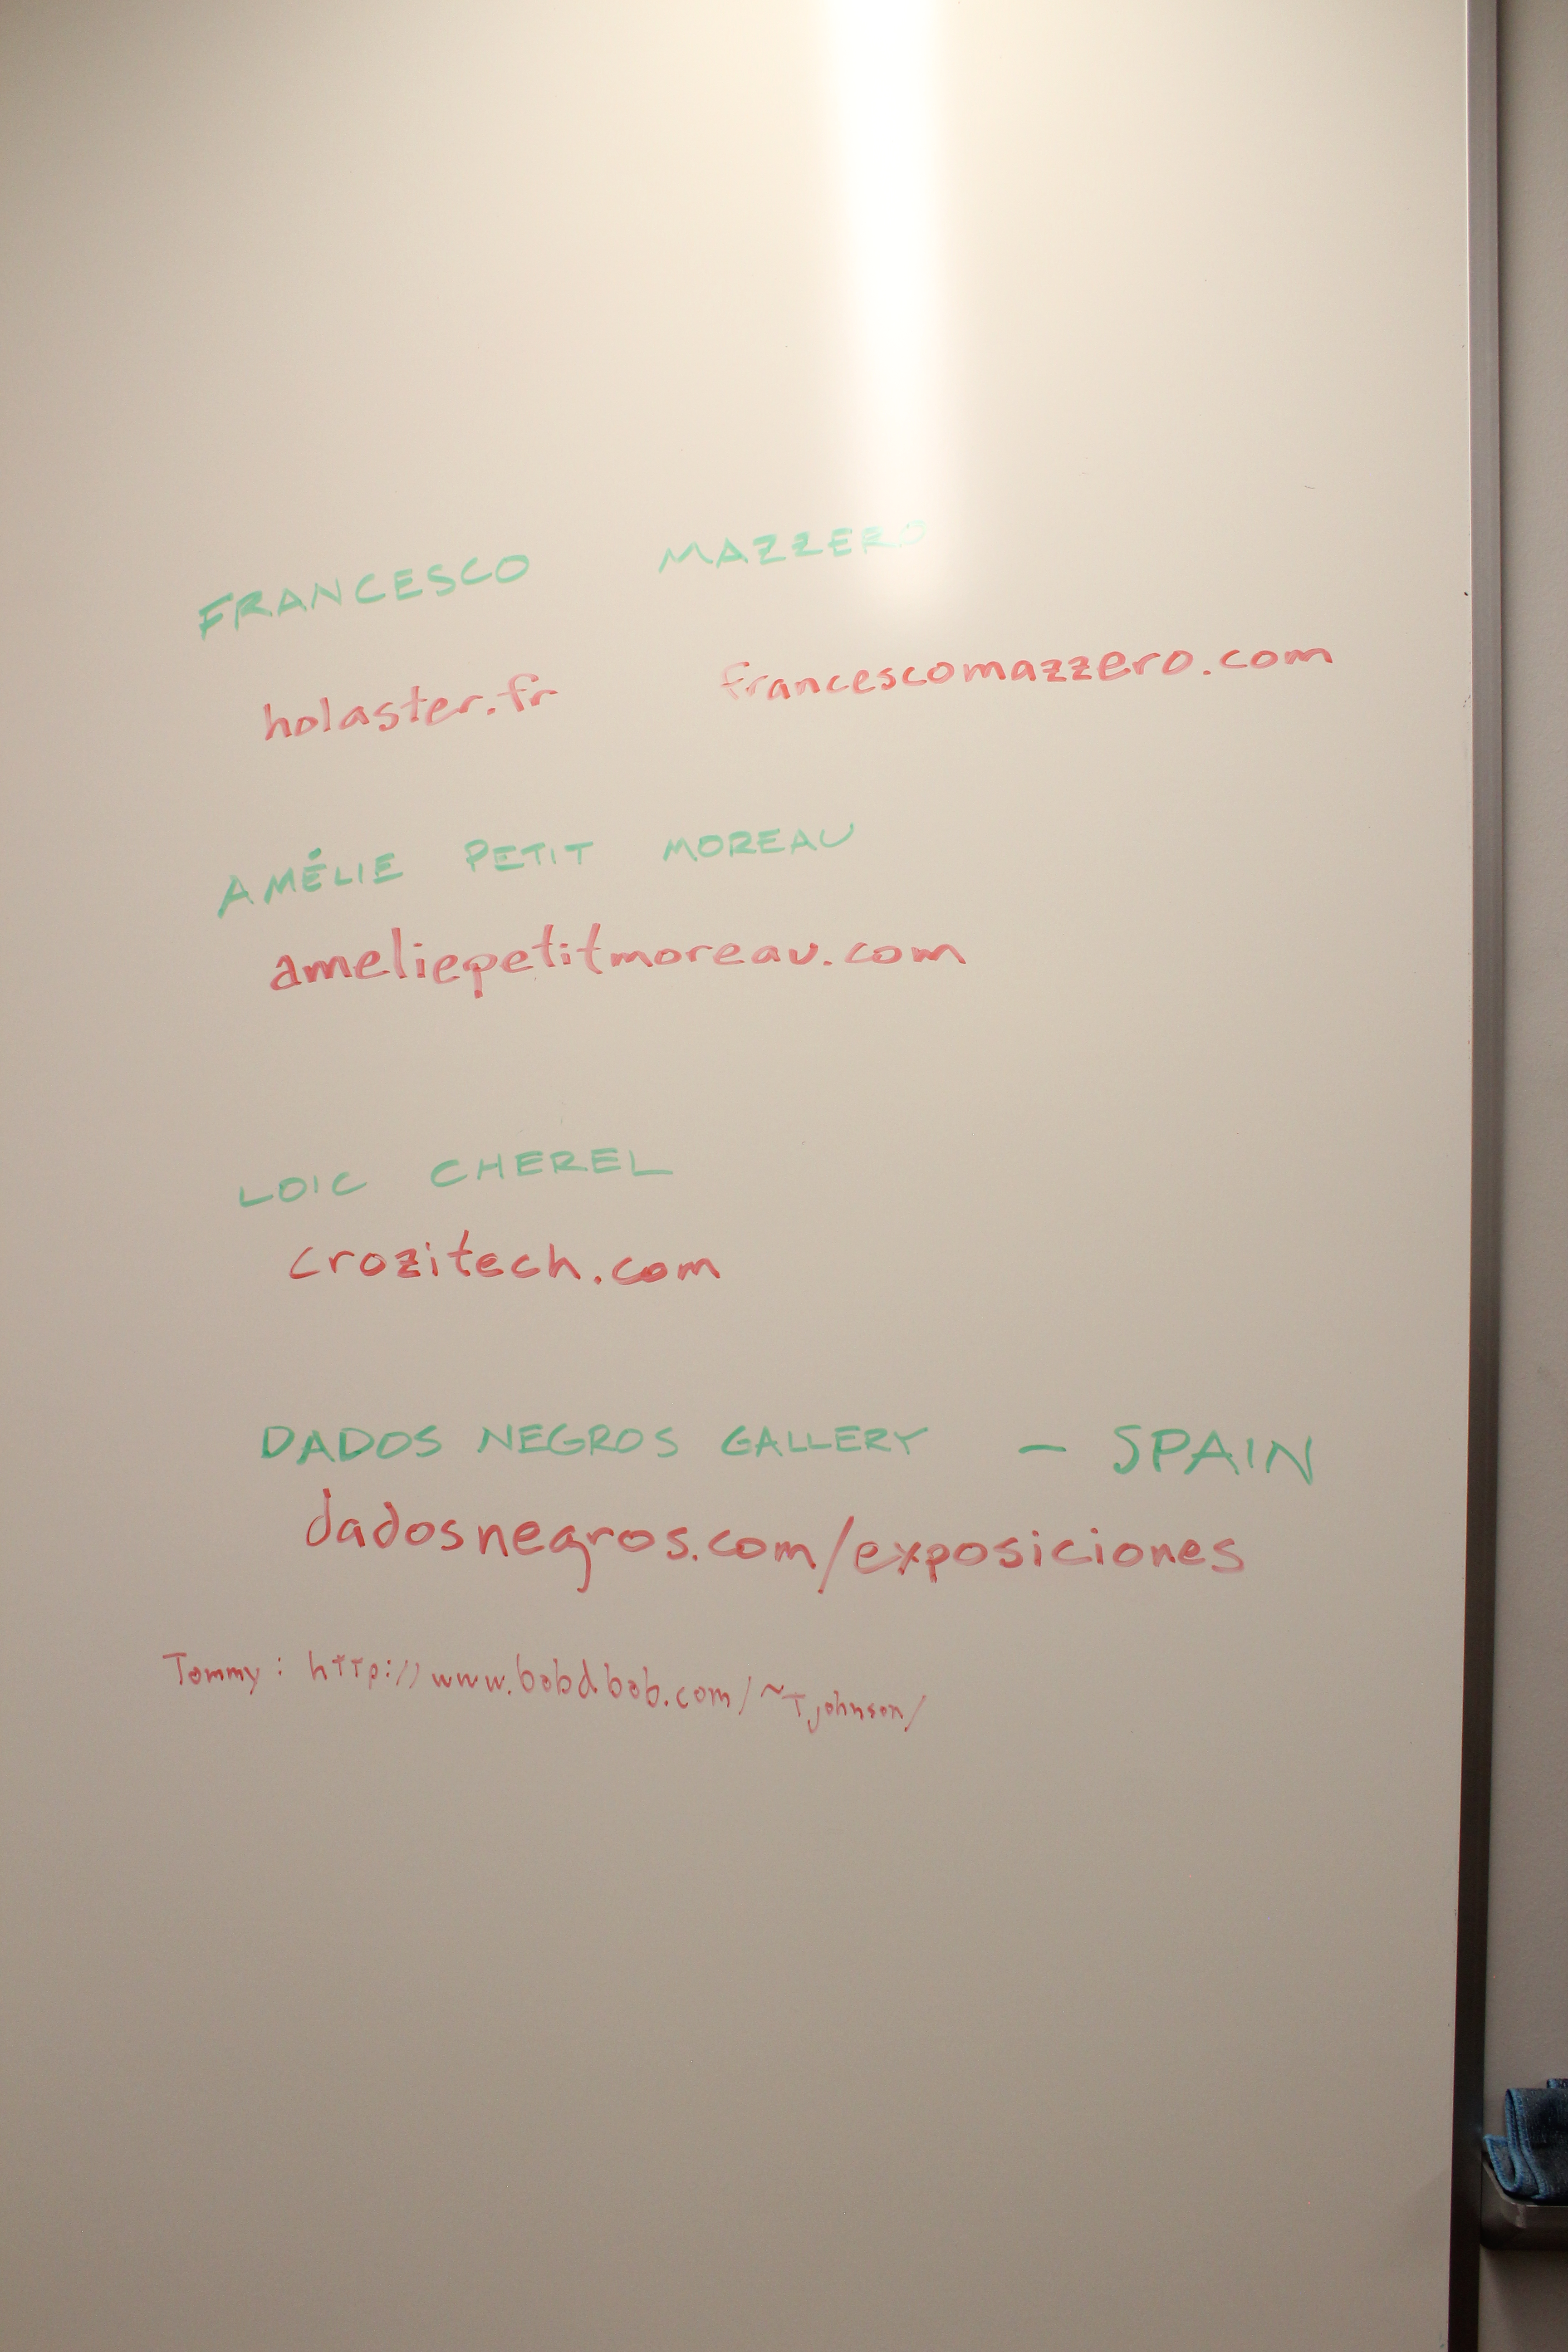 FRANCESCO MAZZERO
holaster.fr francescomazzero.com
AMÉLIE PETIT MOREAU
ameliepetitmoreau.com
LOIC CHEREL
crozitech.com
DADOS NEGROS GALLERY – SPAIN
dadosnegros.com/exposiciones
Tommy: http://www.bobdbob.com/~Tjohnson/